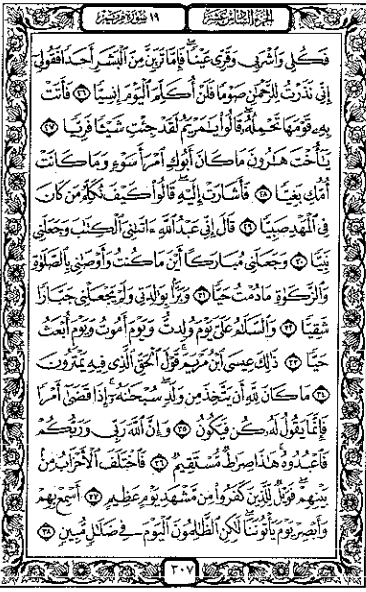 الجزء السادس عشر
١٩ سورة مريم
فَكُلِي وَاشْرَبِي وَقَرِّي عَيْنًا فَإِمَّا تَرَيِنَّ مِنَ الْبَشَرِ أَحَدًا فَقُولِي
إِنِّي نَذَرْتُ لِلرَّحْمَٰنِ صَوْمًا فَلَنْ أُكَلِّمَ الْيَوْمَ إِنسِيًّا ۝٢٦ فَأَتَتْ
بِهِ قَوْمَهَا تَحْمِلُهُ قَالُوا يَٰمَرْيَمُ لَقَدْ جِئْتِ شَيْئًا فَرِيًّا ۝٢٧
يَٰأُخْتَ هَٰرُونَ مَا كَانَ أَبُوكِ امْرَأَ سَوْءٍ وَمَا كَانَتْ
أُمُّكِ بَغِيًّا ۝٢٨ فَأَشَارَتْ إِلَيْهِ قَالُوا كَيْفَ نُكَلِّمُ مَن كَانَ
فِي الْمَهْدِ صَبِيًّا ۝٢٩ قَالَ إِنِّي عَبْدُ اللَّهِ ءَاتَىٰنِيَ الْكِتَٰبَ وَجَعَلَنِي
نَبِيًّا ۝٣٠ وَجَعَلَنِي مُبَارَكًا أَيْنَ مَا كُنتُ وَأَوْصَٰنِي بِالصَّلَوٰةِ
وَالزَّكَوٰةِ مَا دُمْتُ حَيًّا ۝٣١ وَبَرًّا بِوَٰلِدَتِي وَلَمْ يَجْعَلْنِي جَبَّارًا
شَقِيًّا ۝٣٢ وَالسَّلَٰمُ عَلَيَّ يَوْمَ وُلِدتُّ وَيَوْمَ أَمُوتُ وَيَوْمَ أُبْعَثُ
حَيًّا ۝٣٣ ذَٰلِكَ عِيسَى ابْنُ مَرْيَمَ قَوْلَ الْحَقِّ الَّذِي فِيهِ يَمْتَرُونَ
۝٣٤ مَا كَانَ لِلَّهِ أَن يَتَّخِذَ مِن وَلَدٍ سُبْحَٰنَهُ إِذَا قَضَىٰ أَمْرًا
فَإِنَّمَا يَقُولُ لَهُ كُن فَيَكُونُ ۝٣٥ وَإِنَّ اللَّهَ رَبِّي وَرَبُّكُمْ
فَاعْبُدُوهُ هَٰذَا صِرَٰطٌ مُّسْتَقِيمٌ ۝٣٦ فَاخْتَلَفَ الْأَحْزَابُ مِن
بَيْنِهِمْ فَوَيْلٌ لِّلَّذِينَ كَفَرُوا مِن مَّشْهَدِ يَوْمٍ عَظِيمٍ ۝٣٧ أَسْمِعْ بِهِمْ
وَأَبْصِرْ يَوْمَ يَأْتُونَنَا لَٰكِنِ الظَّٰلِمُونَ الْيَوْمَ فِي ضَلَٰلٍ مُّبِينٍ ۝٣٨
٣٠٧